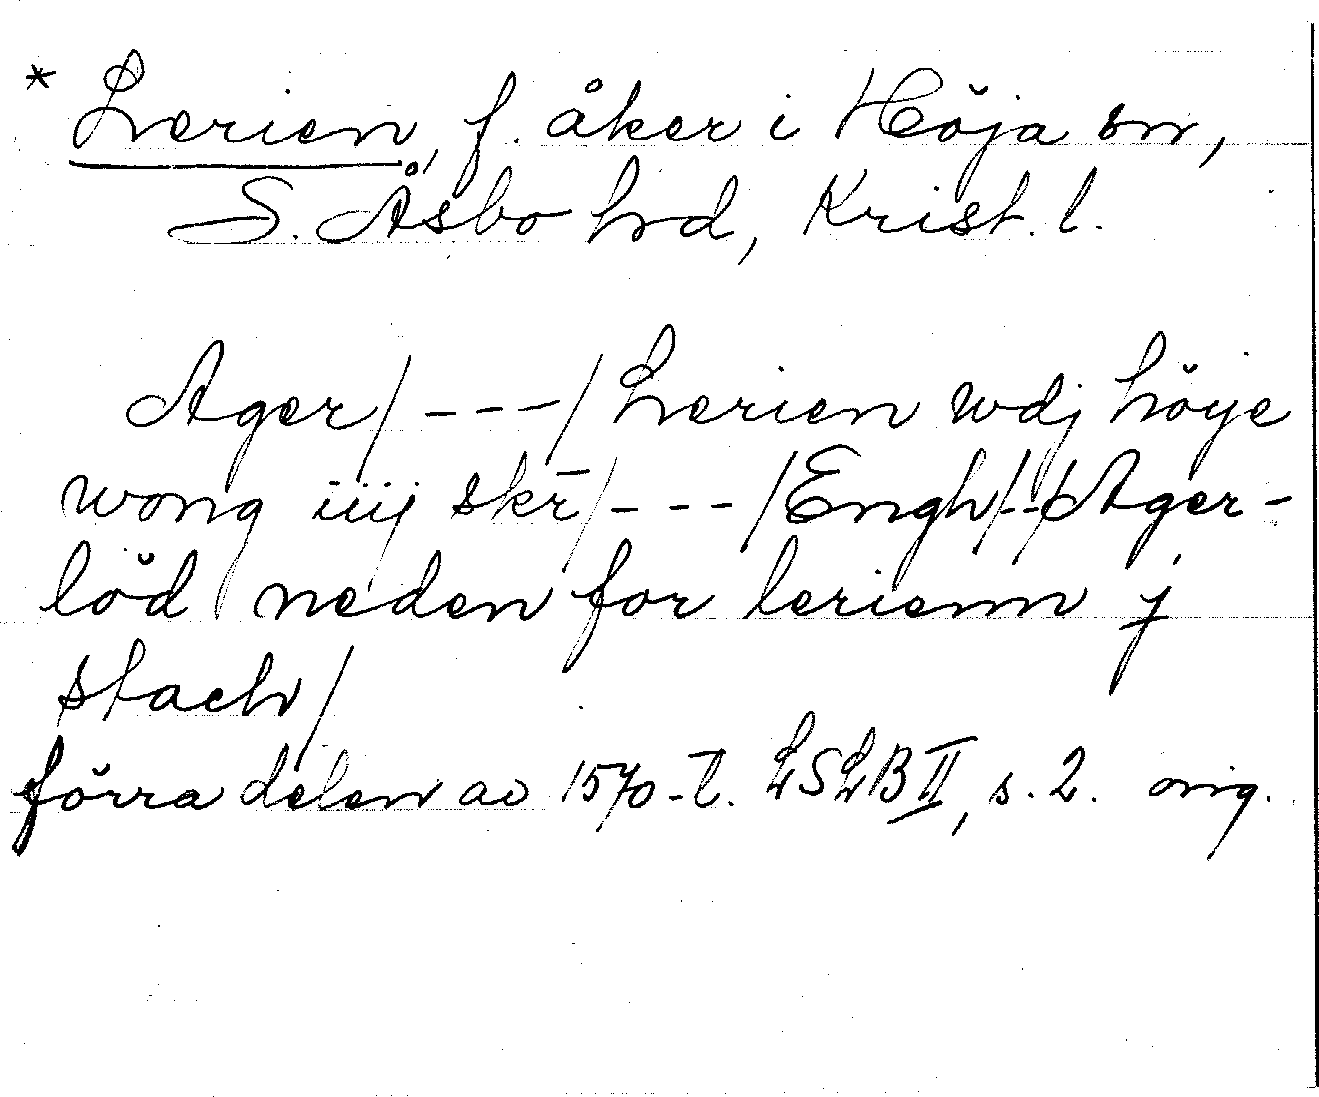 * Lerien, f. åker i Höja sn,
S. Åsbo hrd, Krist. l.
Ager/---/Lerien wdj höye
wong iiij skr̄/---/Engh/--/Ager-
löd neden for lerienn j
stach/
förra delen av 1570-t. LSLB II, s. 2. orig.